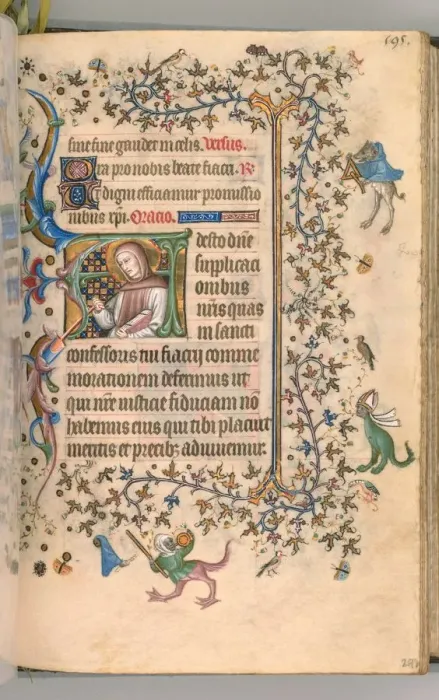 595.
sine fine gaudet in celis. Versus.
Ora pro nobis beate fiacri. R
Ut digni efficiamur promissio
nibus xpi. Oracio.
Adesto dn̄e
supplicaci
onibus
nr̄is quas
in sancti
confessoris tui fiacrij comme
moracionem deferimus ut
qui nr̄e iusticie fiduciam nō
habemus eius qui tibi placuit
meritis et precibꝫ adiuuemur.